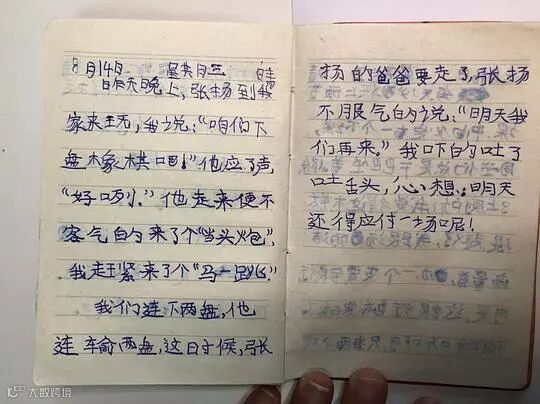 8月14日 星期三 晴
昨天晚上,张扬到我
家来玩,我说:“咱们下
盘象棋吧!”他应了声,
“好哟!”他走来便不
客气的来了个“当头炮”,
我赶紧来了个“马一跳”。
我们连下两盘,他
连输两盘,这时候,张
扬的爸爸要走了,张扬
不服气的说:“明天我
们再来。”我吓的吐了
吐舌头,心想:明天
还得应付一场呢!
大数跨境